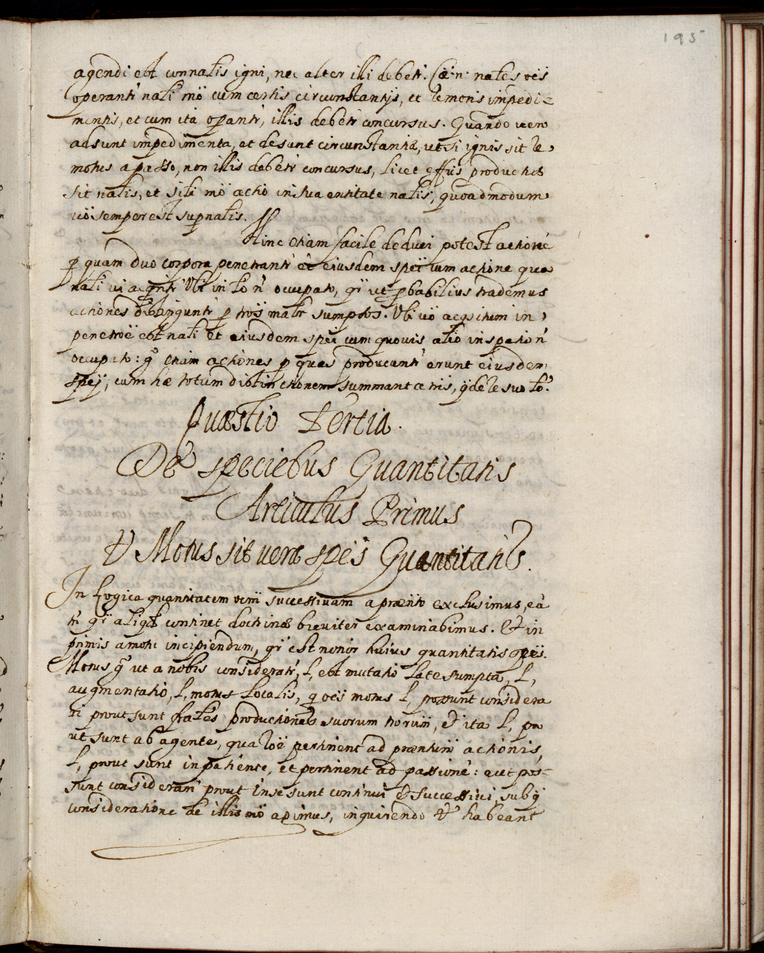 195
agendi est connalis igni, nec alter illi debet. Cæ. n. nales oēs
operanti nali mō cum certis circunstantijs, et remotis impedi-
mentis, et cum ita operanti, illis debetr concursus. Quando vero
adsunt impedimenta, et desunt circunstantiæ, ut si ignis sit re
motus a passo, non illis debetr concursus, licet effūs productus
sit nalis, et sibi mō actio in sua entitate nalis, quoad modum
vō semper est supnalis.
Hinc etiam facile deduci potest actionē
p quam duo corpora penetrantr eē eiusdem speī cum actione qua
nali vi aqritr Vbi in lo n̄ occupato, qr ut probabilius trademus
actiones distingunt p trōs mālr sumptos. Vbi vō aqsitum in
penetrōe est nali et eiusdem speī cum quovis alio in spatio n̄
occupato: g etiam actiones p quas producantr erunt eiusdem
speij, cum hæ totum distinctionem summant a tris, qde le suo lo.
Quæstio Tertia.
De speciebus Quantitatis
Articulus Primus
Vt Motus sit vera speī Quantitatis.
In Logica quantitatem oem successivam a prænto exclusimus, eā
tn qr aliqd continet doctrinæ breviter examinabimus. Et in
primis a motu incipiendum, qr est notior huius quantitatis speī.
Motus g ut a nobis consideratr, l, est mutatio late sumpta, l,
augmentatio, l, motus localis, q oēs motus l, possunt considera
ri prout sunt fales productiones suorum trorum, et ita l, pro
ut sunt ab agente, qua rōē pertinent ad præntum actionis,
l, prout sunt in patiente, et pertinent ad passionē: aut pos-
sunt considerari prout in se sunt continui et successivi, sub q
consideratione de illis mō agimus, inquirendo Vt habeant